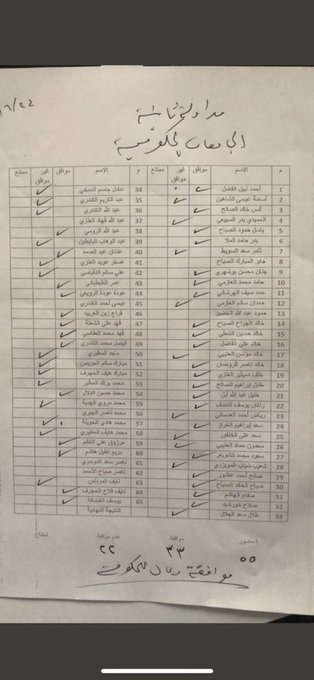 مداولة ثانية
الجامعات الحكومية
م الاسم موافق غير موافق ممتنع
1 أحمد نبيل الفضل
2 أسامة عيسى الشاهين
3 أنس خالد الصالح
4 الحميدي بدر السبيعي
5 باسل حمود الصباح
6 بدر حامد الملا
7 ثامر سعد السويط
8 جابر المبارك الصباح
9 جنان محسن بوشهري
10 حامد محمد العازمي
11 حمد سيف الهرشاني
12 حمدان سالم العازمي
13 حمود عبد الله الخضير
14 خالد الجراح الصباح
15 خالد حسين الشطي
16 خالد علي الفاضل
17 خالد مؤنس العتيبي
18 خالد ناصر الروضان
19 خلف دميثير العنزي
20 خليل إبراهيم الصالح
21 خليل عبد الله أبل
22 راكان يوسف النصف
23 رياض أحمد العدساني
24 سعد إبراهيم الخراز
25 سعد علي الخنفور
26 سعدون حماد العتيبي
27 سعود محمد الشويعر
28 شعيب شباب المويزري
29 صالح أحمد عاشور
30 صباح الخالد الصباح
31 صفاء الهاشم
32 صلاح خورشيد
33 طلال سعد الجلال
م الاسم موافق غير موافق ممتنع
34 عادل جاسم الدمخي
35 عبد الكريم الكندري
36 عبد الله الكندري
37 عبد الله فهاد العنزي
38 عبد الله الرومي
39 عبد الوهاب البابطين
40 عدنان عبد الصمد
41 عسكر عويد العنزي
42 علي سالم الدقباسي
43 عمر الطبطبائي
44 عودة عودة الرويعي
45 عيسى أحمد الكندري
46 فراج زبن العربيد
47 فهد علي الشعلة
48 فهد محمد العفاسي
49 فيصل محمد الكندري
50 ماجد المطيري
51 مبارك سالم الحريص
52 مبارك هيف الحجرف
53 محمد براك المطير
54 محمد حسين الدلال
55 محمد مروي الهدية
56 محمد ناصر الجبري
57 محمد هادي الحويلة
58 محمد هايف المطيري
59 مرزوق علي الغانم
60 مريم عقيل هاشم
61 ناصر سعد الدوسري
62 ناصر صباح الأحمد
63 نايف المرداس
64 نايف فلاح الحجرف
65 يوسف الفضالة
النتيجة النهائية
الحضور موافقة عدم موافقة امتناع
٥٥ ٣٣ ٢٢